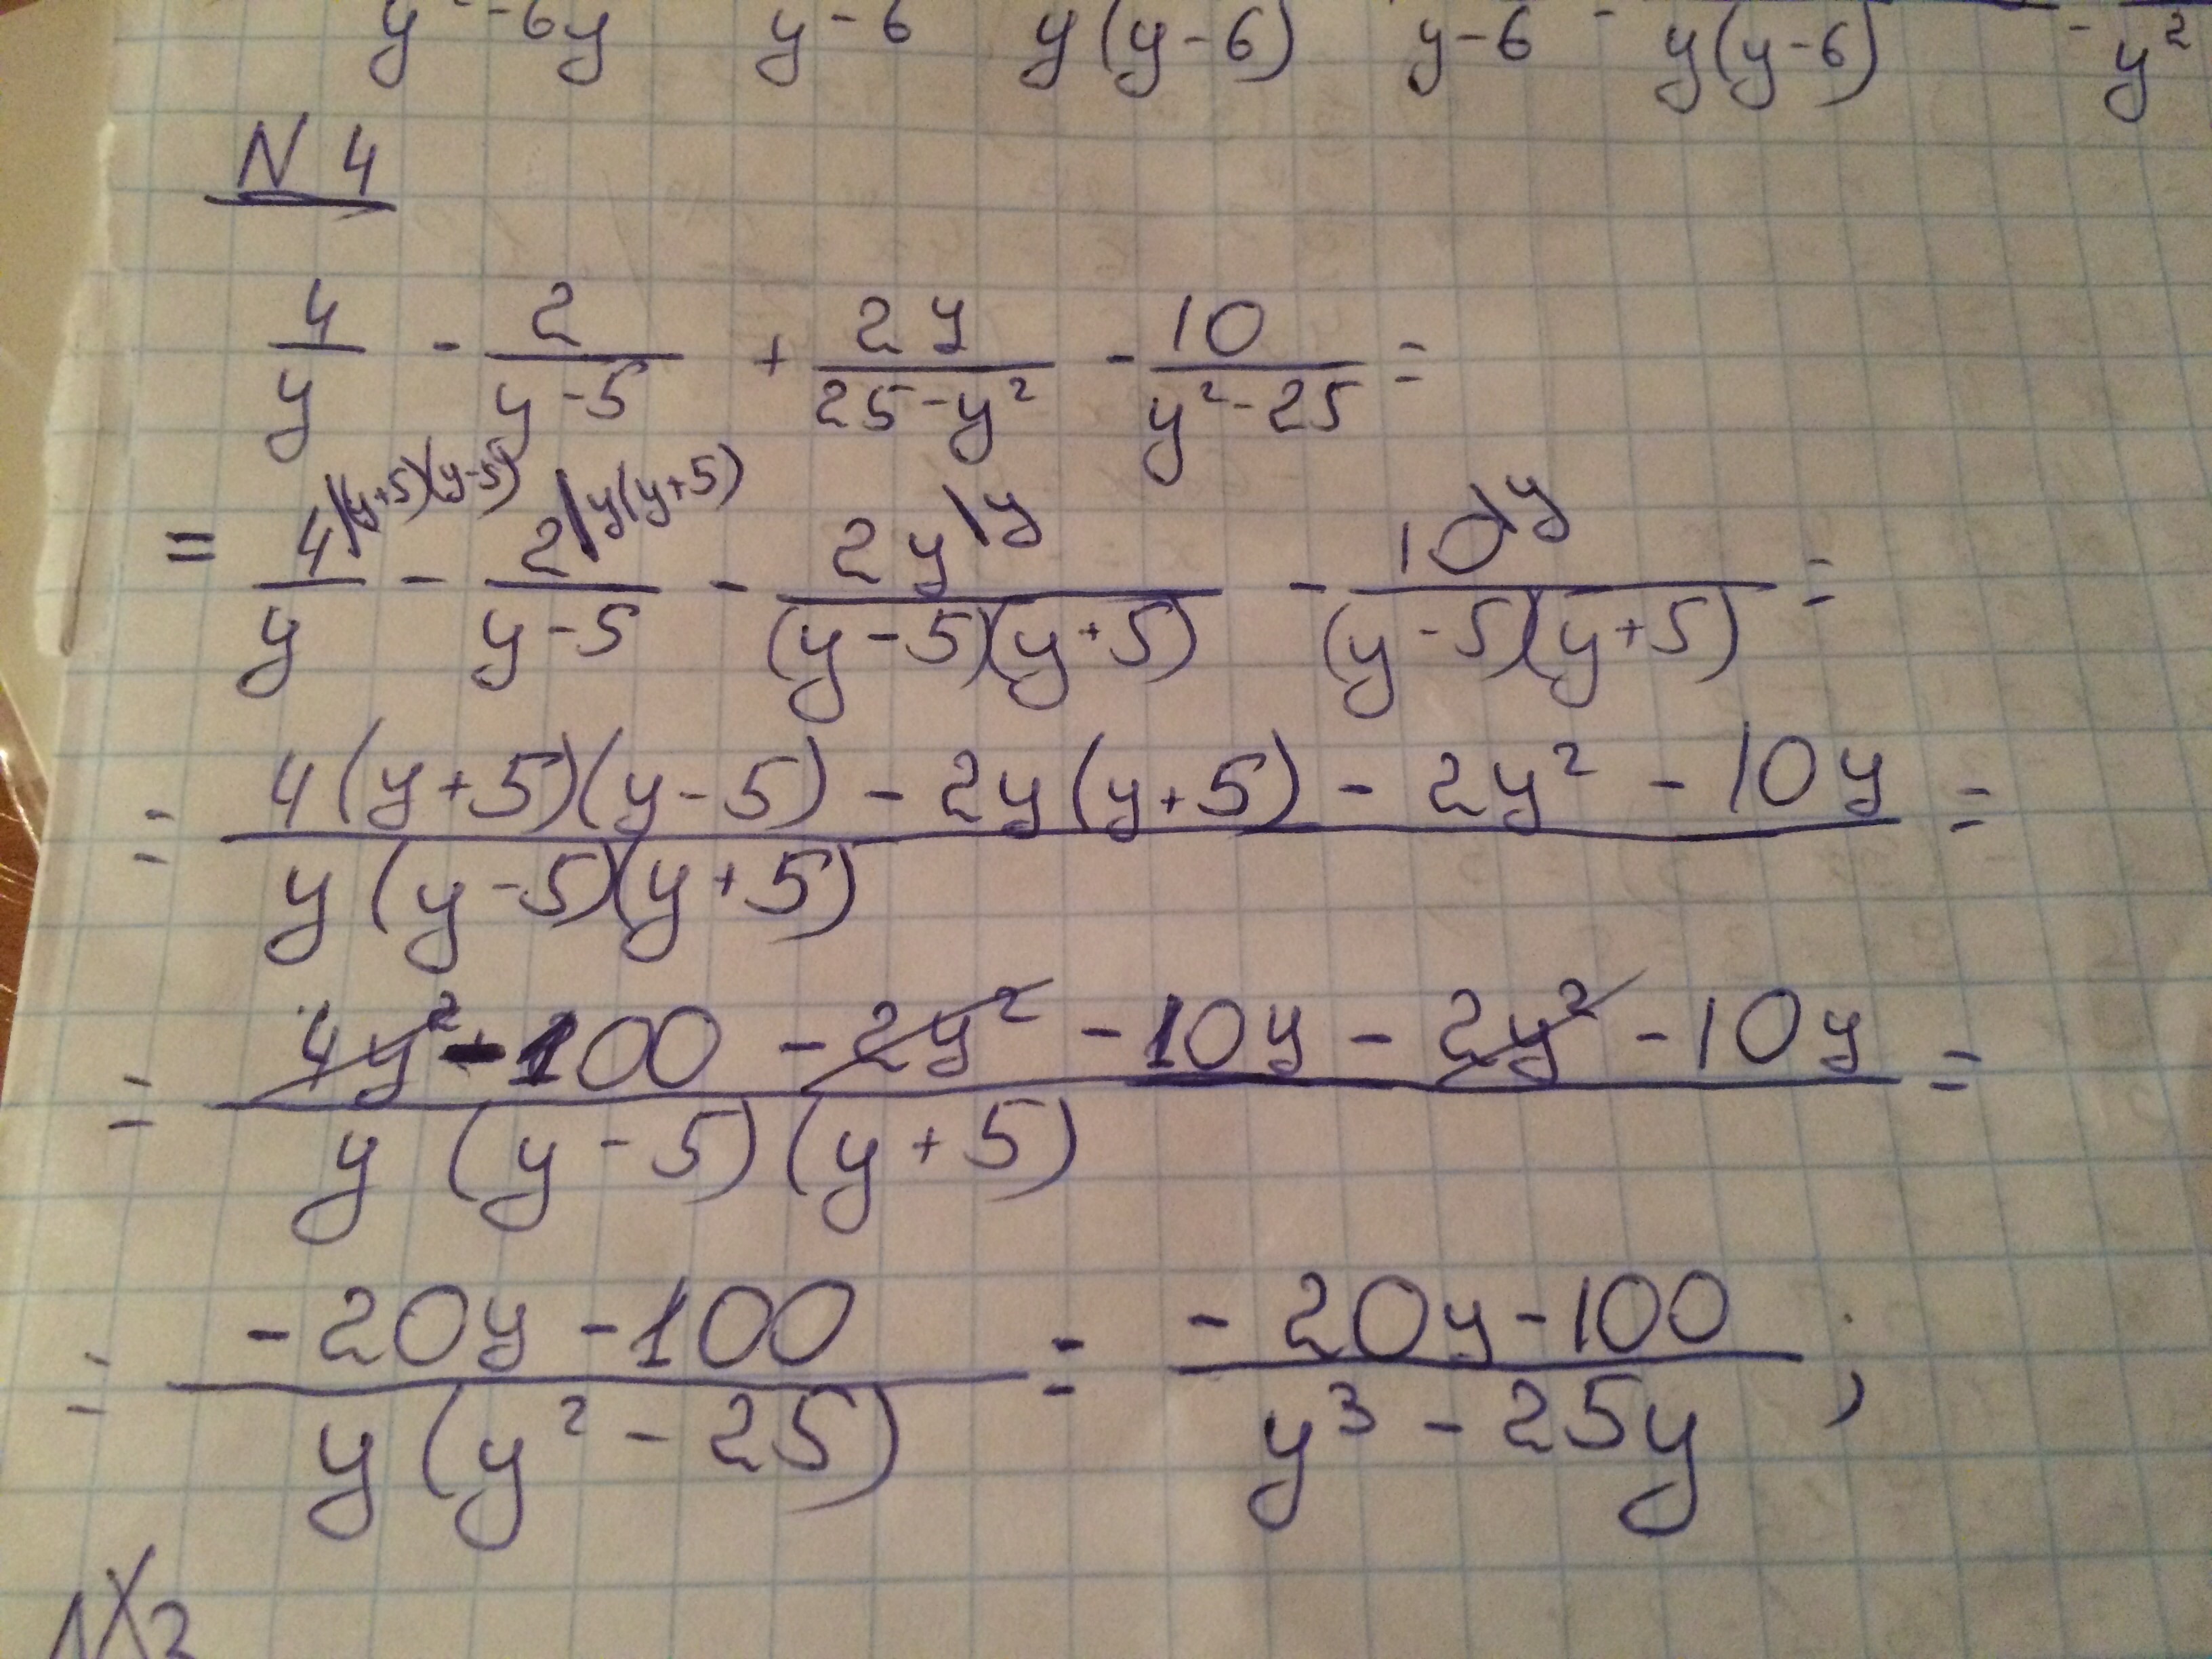 y² - 6y   y - 6   y(y - 6)   y - 6 - y(y - 6)   - y²
N 4
4/y - 2/(y - 5) + 2y/(25 - y²) - 10/(y² - 25) =
= 4\(y+5)(y-5)/y - 2\y(y+5)/(y - 5) - 2y\y/((y - 5)(y + 5)) - 10\y/((y - 5)(y + 5)) =
= (4(y + 5)(y - 5) - 2y(y + 5) - 2y² - 10y)/(y(y - 5)(y + 5)) =
= (4y² - 100 - 2y² - 10y - 2y² - 10y)/(y(y - 5)(y + 5)) =
= (-20y - 100)/(y(y² - 25)) = (-20y - 100)/(y³ - 25y) ;